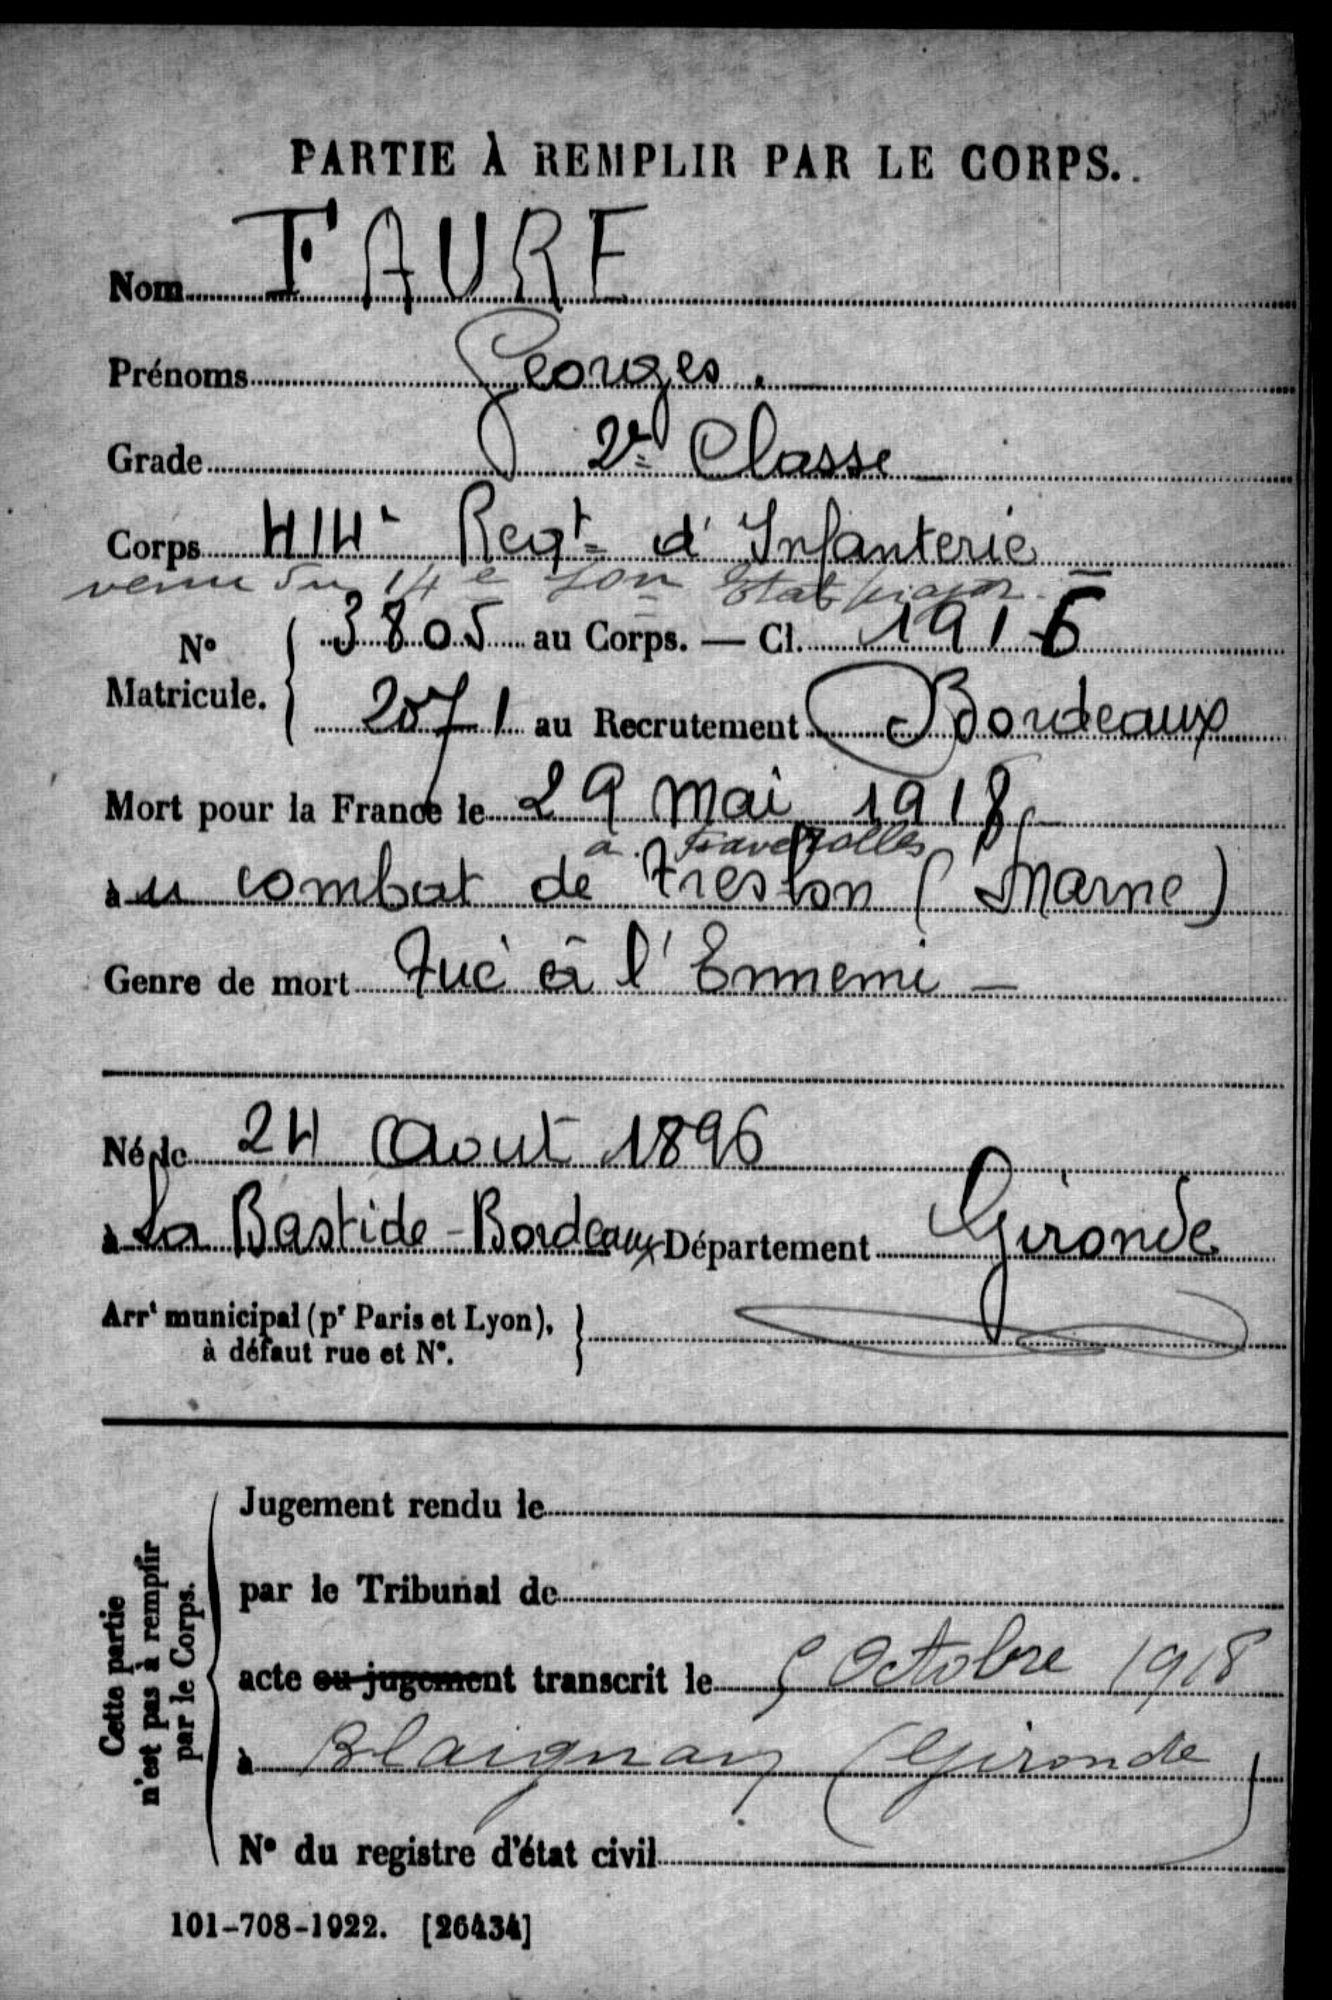 PARTIE À REMPLIR PAR LE CORPS.
Nom FAURE
Prénoms Georges.
Grade 2e Classe
Corps 414e Regt d'Infanterie
venu du 14e son Etat major
No Matricule. 3805 au Corps. — Cl. 1916
2071 au Recrutement Bordeaux
Mort pour la France le 29 mai 1918
a
au combat de Treslon (Marne)
Genre de mort Tué à l'Ennemi —
Né le 24 Aout 1896
à La Bastide-Bordeaux Département Gironde
Arrt municipal (pr Paris et Lyon),
à défaut rue et No.
Cette partie n'est pas à remplir par le Corps.
Jugement rendu le
par le Tribunal de
acte ou jugement transcrit le 5 Octobre 1918
à Blaignan (Gironde)
No du registre d'état civil
101-708-1922. [26434]